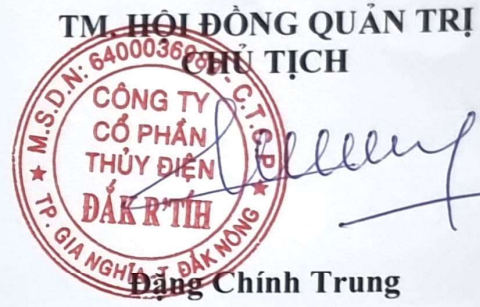 TM. HỘI ĐỒNG QUẢN TRỊ
CHỦ TỊCH
M.S.D.N: - C.T.C.P
CÔNG TY
CỔ PHẦN
THỦY ĐIỆN
ĐẮK R'TÍH
TP. GIA NGHĨA - T. ĐẮK NÔNG
Đặng Chính Trung